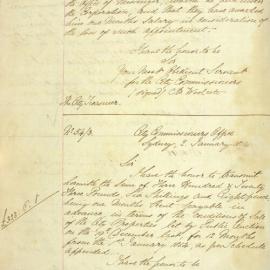 the office of Messenger, which he held under
the Corporation, and that they have awarded
him one Months Salary in consideration of
the loss of such appointment.
I have the honor to be
Sir
Your Most Obedient Servant
for the City Commissioners
The City Treasurer
No 54/3. City Commissioners Office
Sydney, 2 January
Sir
I have the honor to transmit
herewith the Sum of Three Hundred & Twenty
Three Pounds Six Shillings and Eight pence
being one Months Rent payable in
advance in terms of the conditions of Sale
of the City Properties let by Public Auction
on the December last for 12 Months
from the 1st January as per Schedule
appended.
I have the honor to be